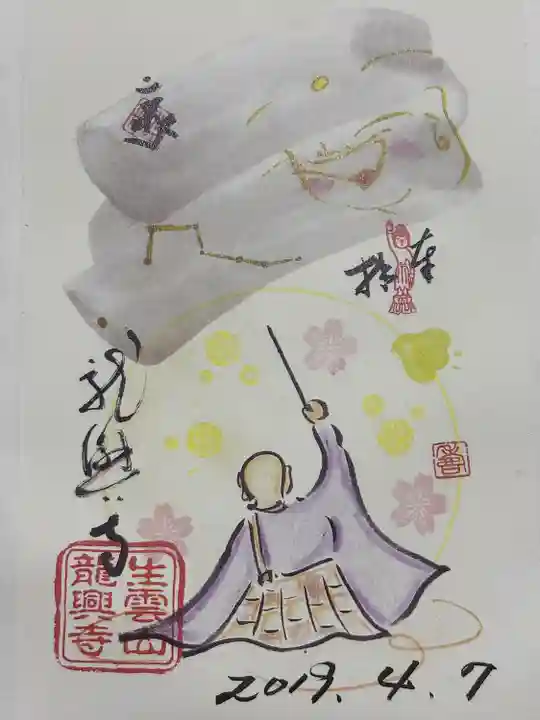 奉拝
龍興寺
生雲山
龍興寺
2019.4.7